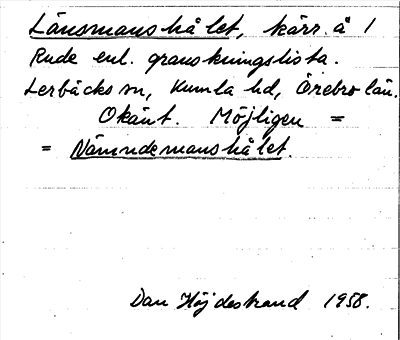 Länsmanshålet, kärr. å 1
Rude enl. granskningslista.
Lerbäcks sn, Kumla hd, Örebro län.
Okänt. Möjligen =
= Nämndemanshålet.
Dan Höjdestrand 1958.